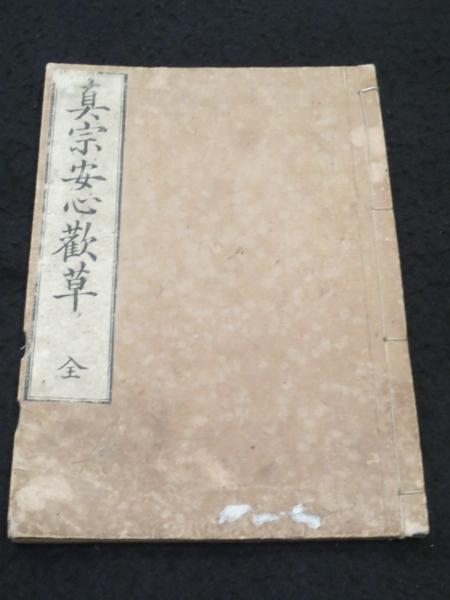 真宗安心歡草
全